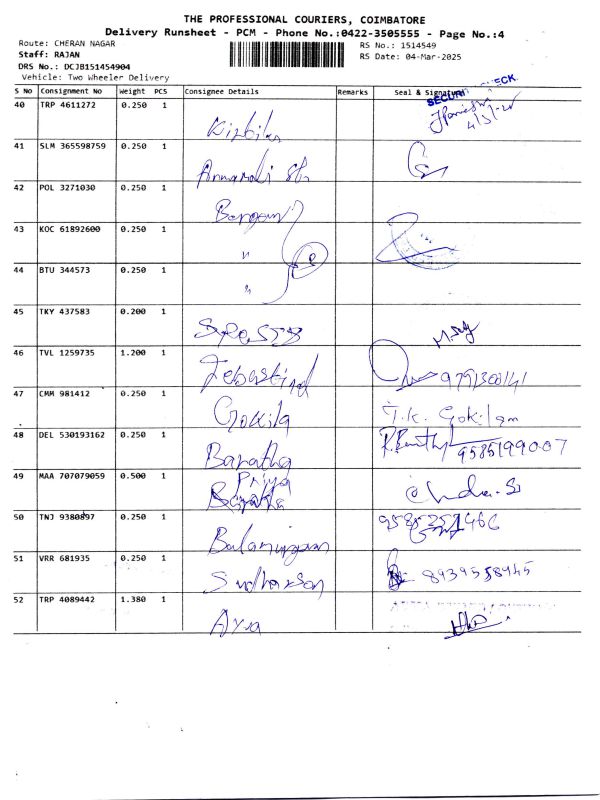 THE PROFESSIONAL COURIERS, COIMBATORE
Delivery Runsheet - PCM - Phone No.:0422-3505555 - Page No.:4
Route: CHERAN NAGAR RS No.: 1514549
Staff: RAJAN RS Date: 04-Mar-2025
DRS No.: DCJB151454904
Vehicle: Two Wheeler Delivery
S No Consignment No Weight PCS Consignee Details Remarks Seal & Signature
SECURITY CHECK
40 TRP 4611272 0.250 1
4/3/25
41 SLM 365598759 0.250 1
42 POL 3271030 0.250 1
43 KOC 61892600 0.250 1 "
44 BTU 344573 0.250 1 "
45 TKY 437583 0.200 1
46 TVL 1259735 1.200 1 9791300141
47 CMM 981412 0.250 1 Gokila
48 DEL 530193162 0.250 1 Baratha 9585199007
49 MAA 707079059 0.500 1 Priya
50 TNJ 9380897 0.250 1 Balamurgan
51 VRR 681935 0.250 1 Sudharson 8939558945
52 TRP 4089442 1.380 1